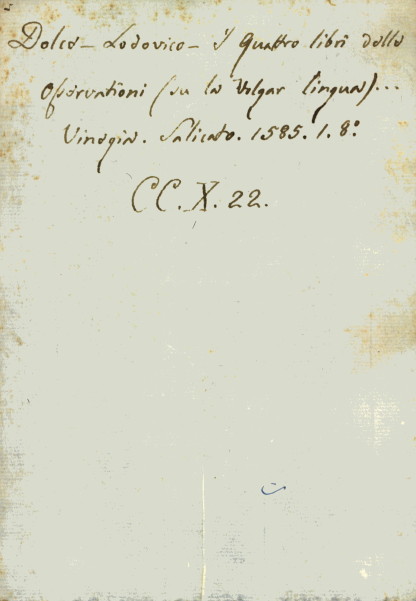 Dolce - Lodovico - I Quattro libri delle
Osservationi (su la Volgar lingua)...
Vinegia. Salicato. 1585. 1. 8º
CC. X. 22.